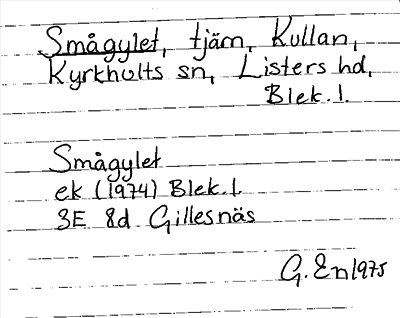 Smågylet, tjärn, Kullan,
Kyrkhults sn, Listers hd,
Blek. l.
Smågylet
ek (1974) Blek. l.
3E 8d Gillesnäs
G. En 1975